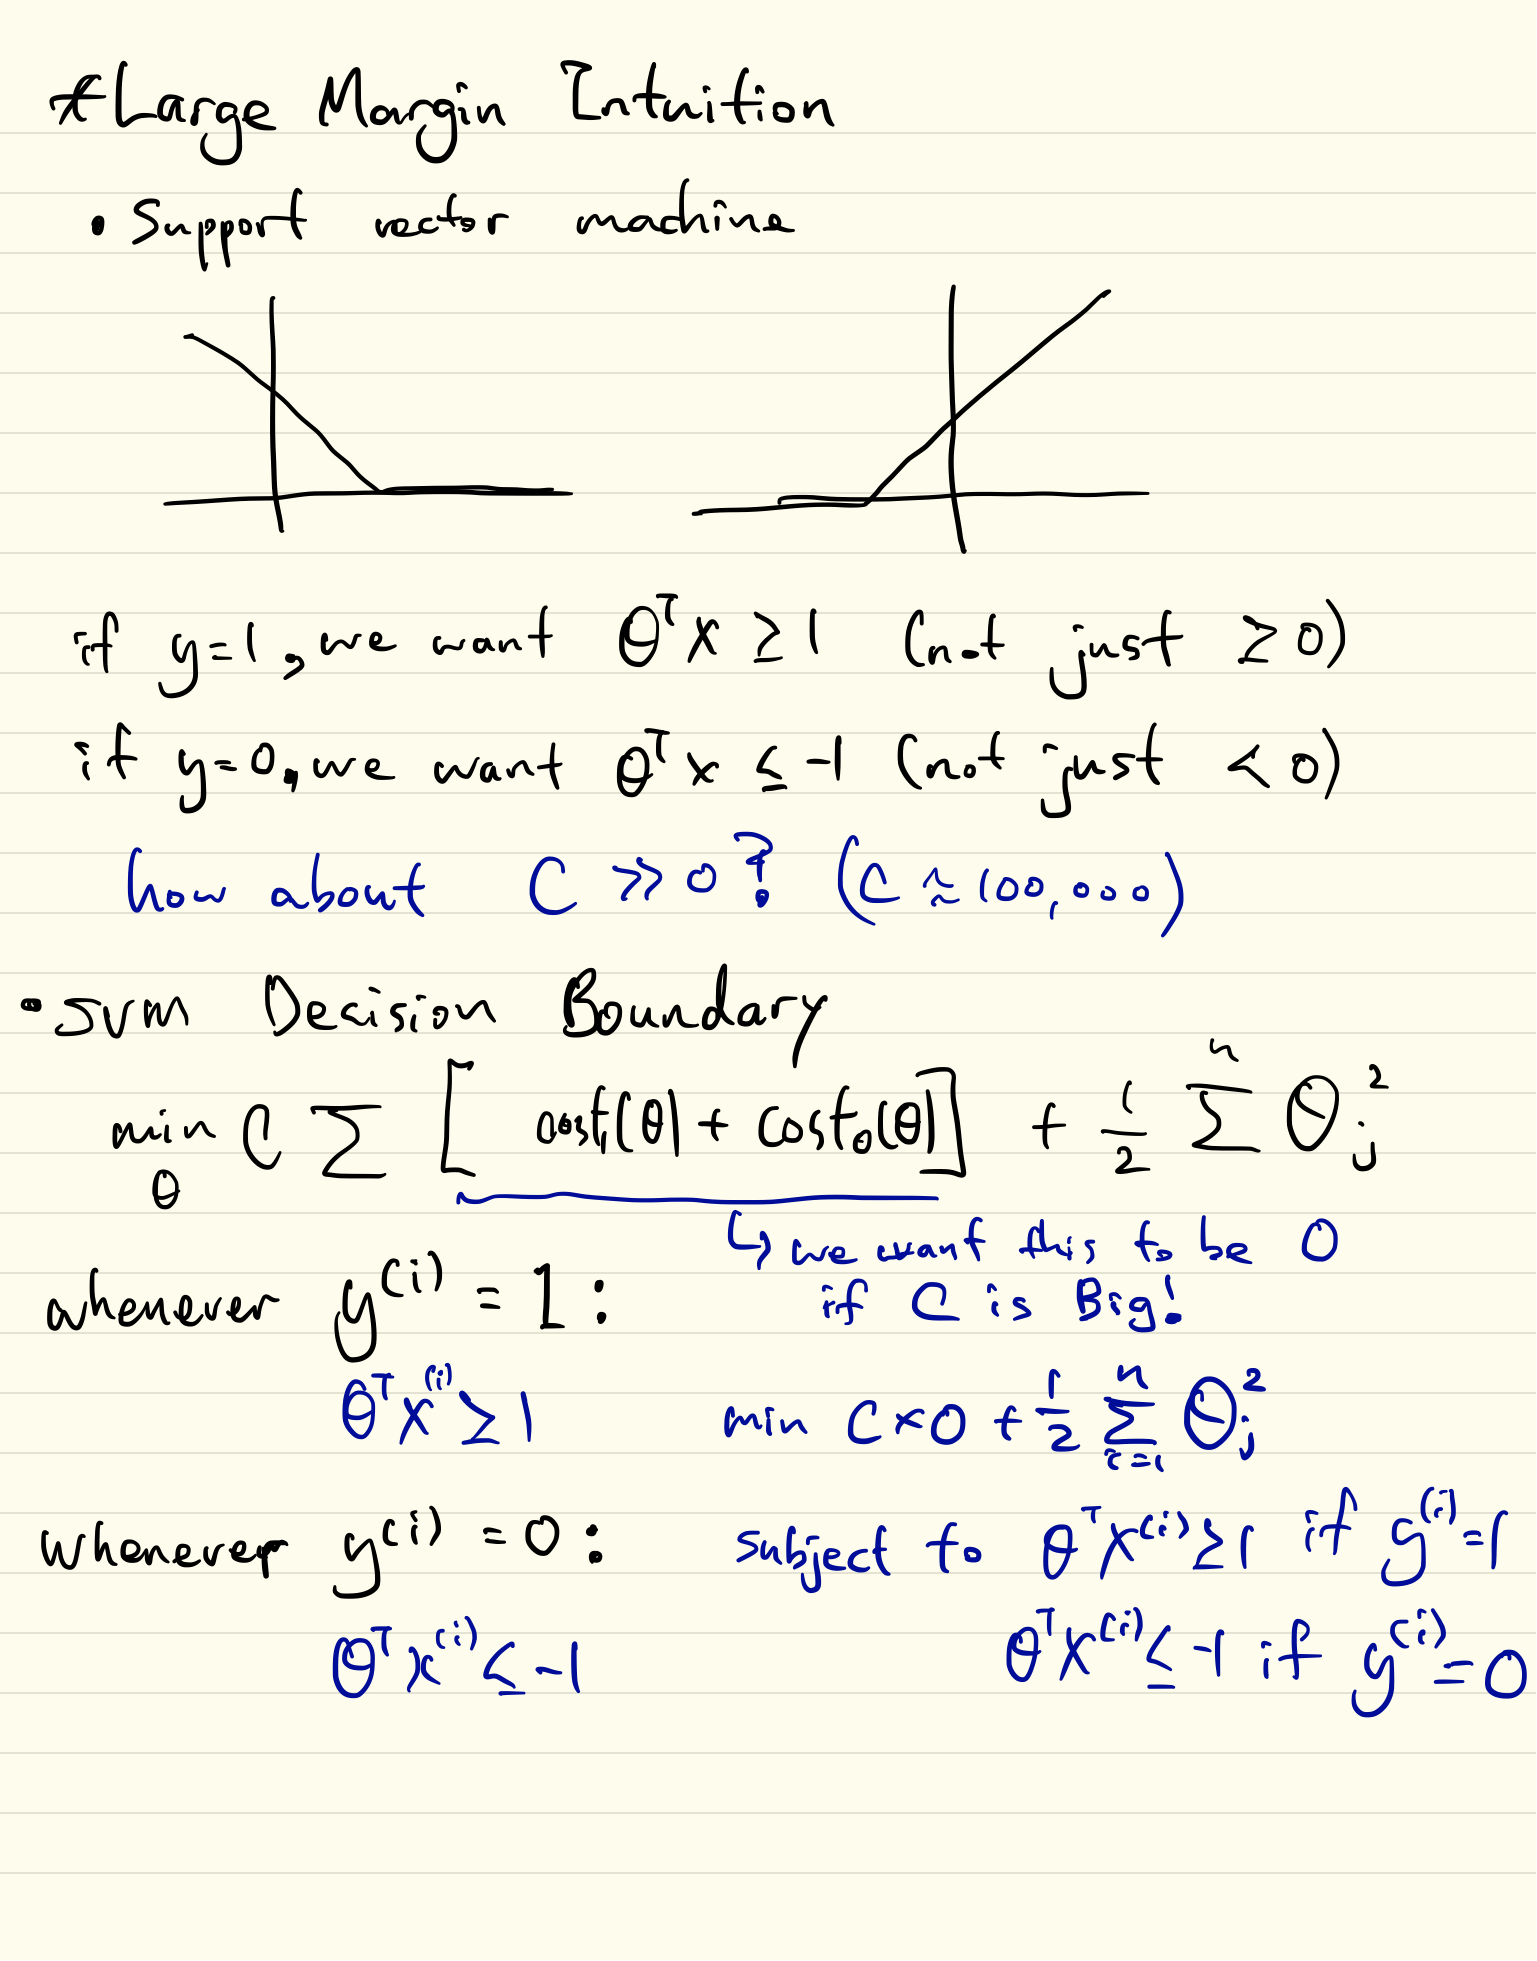 *Large Margin Intuition
• Support vector machine
if y=1, we want θᵀx ≥ 1 (not just ≥ 0)
if y=0, we want θᵀx ≤ -1 (not just < 0)
how about C ≫ 0? (C ≈ 100,000)
• SVM Decision Boundary
min_θ C ∑ [ cost₁(θ) + cost₀(θ) ] + 1/2 ∑ⁿ θⱼ²
↳ we want this to be 0
if C is Big!
whenever y⁽ⁱ⁾ = 1:
θᵀx⁽ⁱ⁾ ≥ 1
min C×0 + 1/2 ∑ⁿᵢ₌₁ θⱼ²
whenever y⁽ⁱ⁾ = 0:
subject to θᵀx⁽ⁱ⁾ ≥ 1 if y⁽ⁱ⁾ = 1
θᵀx⁽ⁱ⁾ ≤ -1
θᵀx⁽ⁱ⁾ ≤ -1 if y⁽ⁱ⁾ = 0